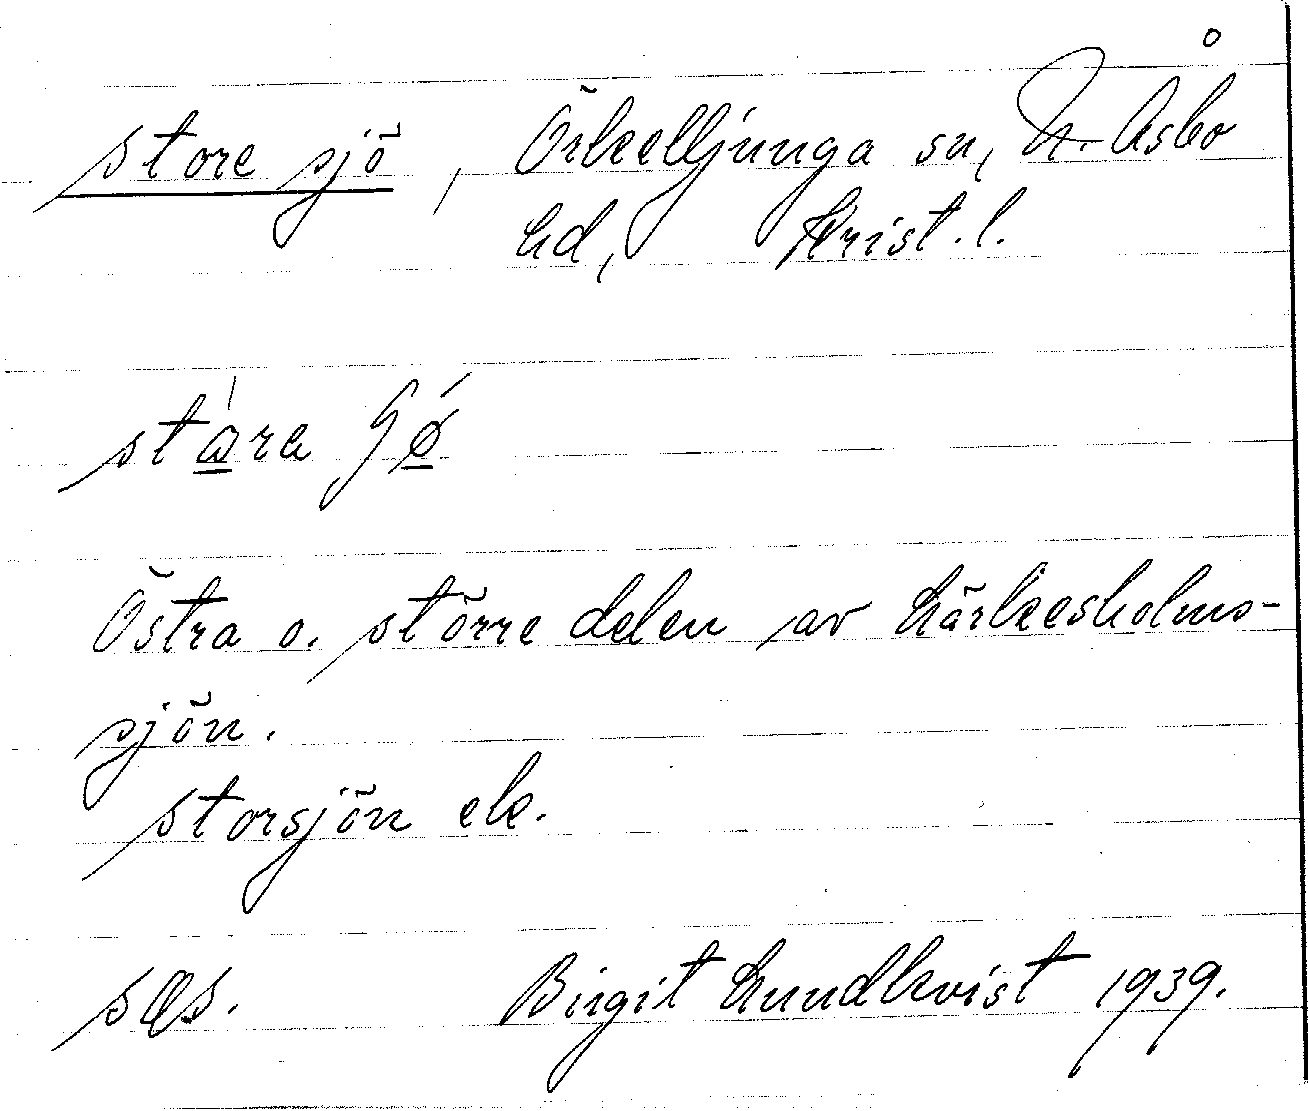 store sjö, Örkelljunga sn, N. Åsbo
hd, Krist. l.
Östra o. större delen av Lärkesholms-
sjön.
storsjön ek.
sås. Birgit Lundkvist 1939.